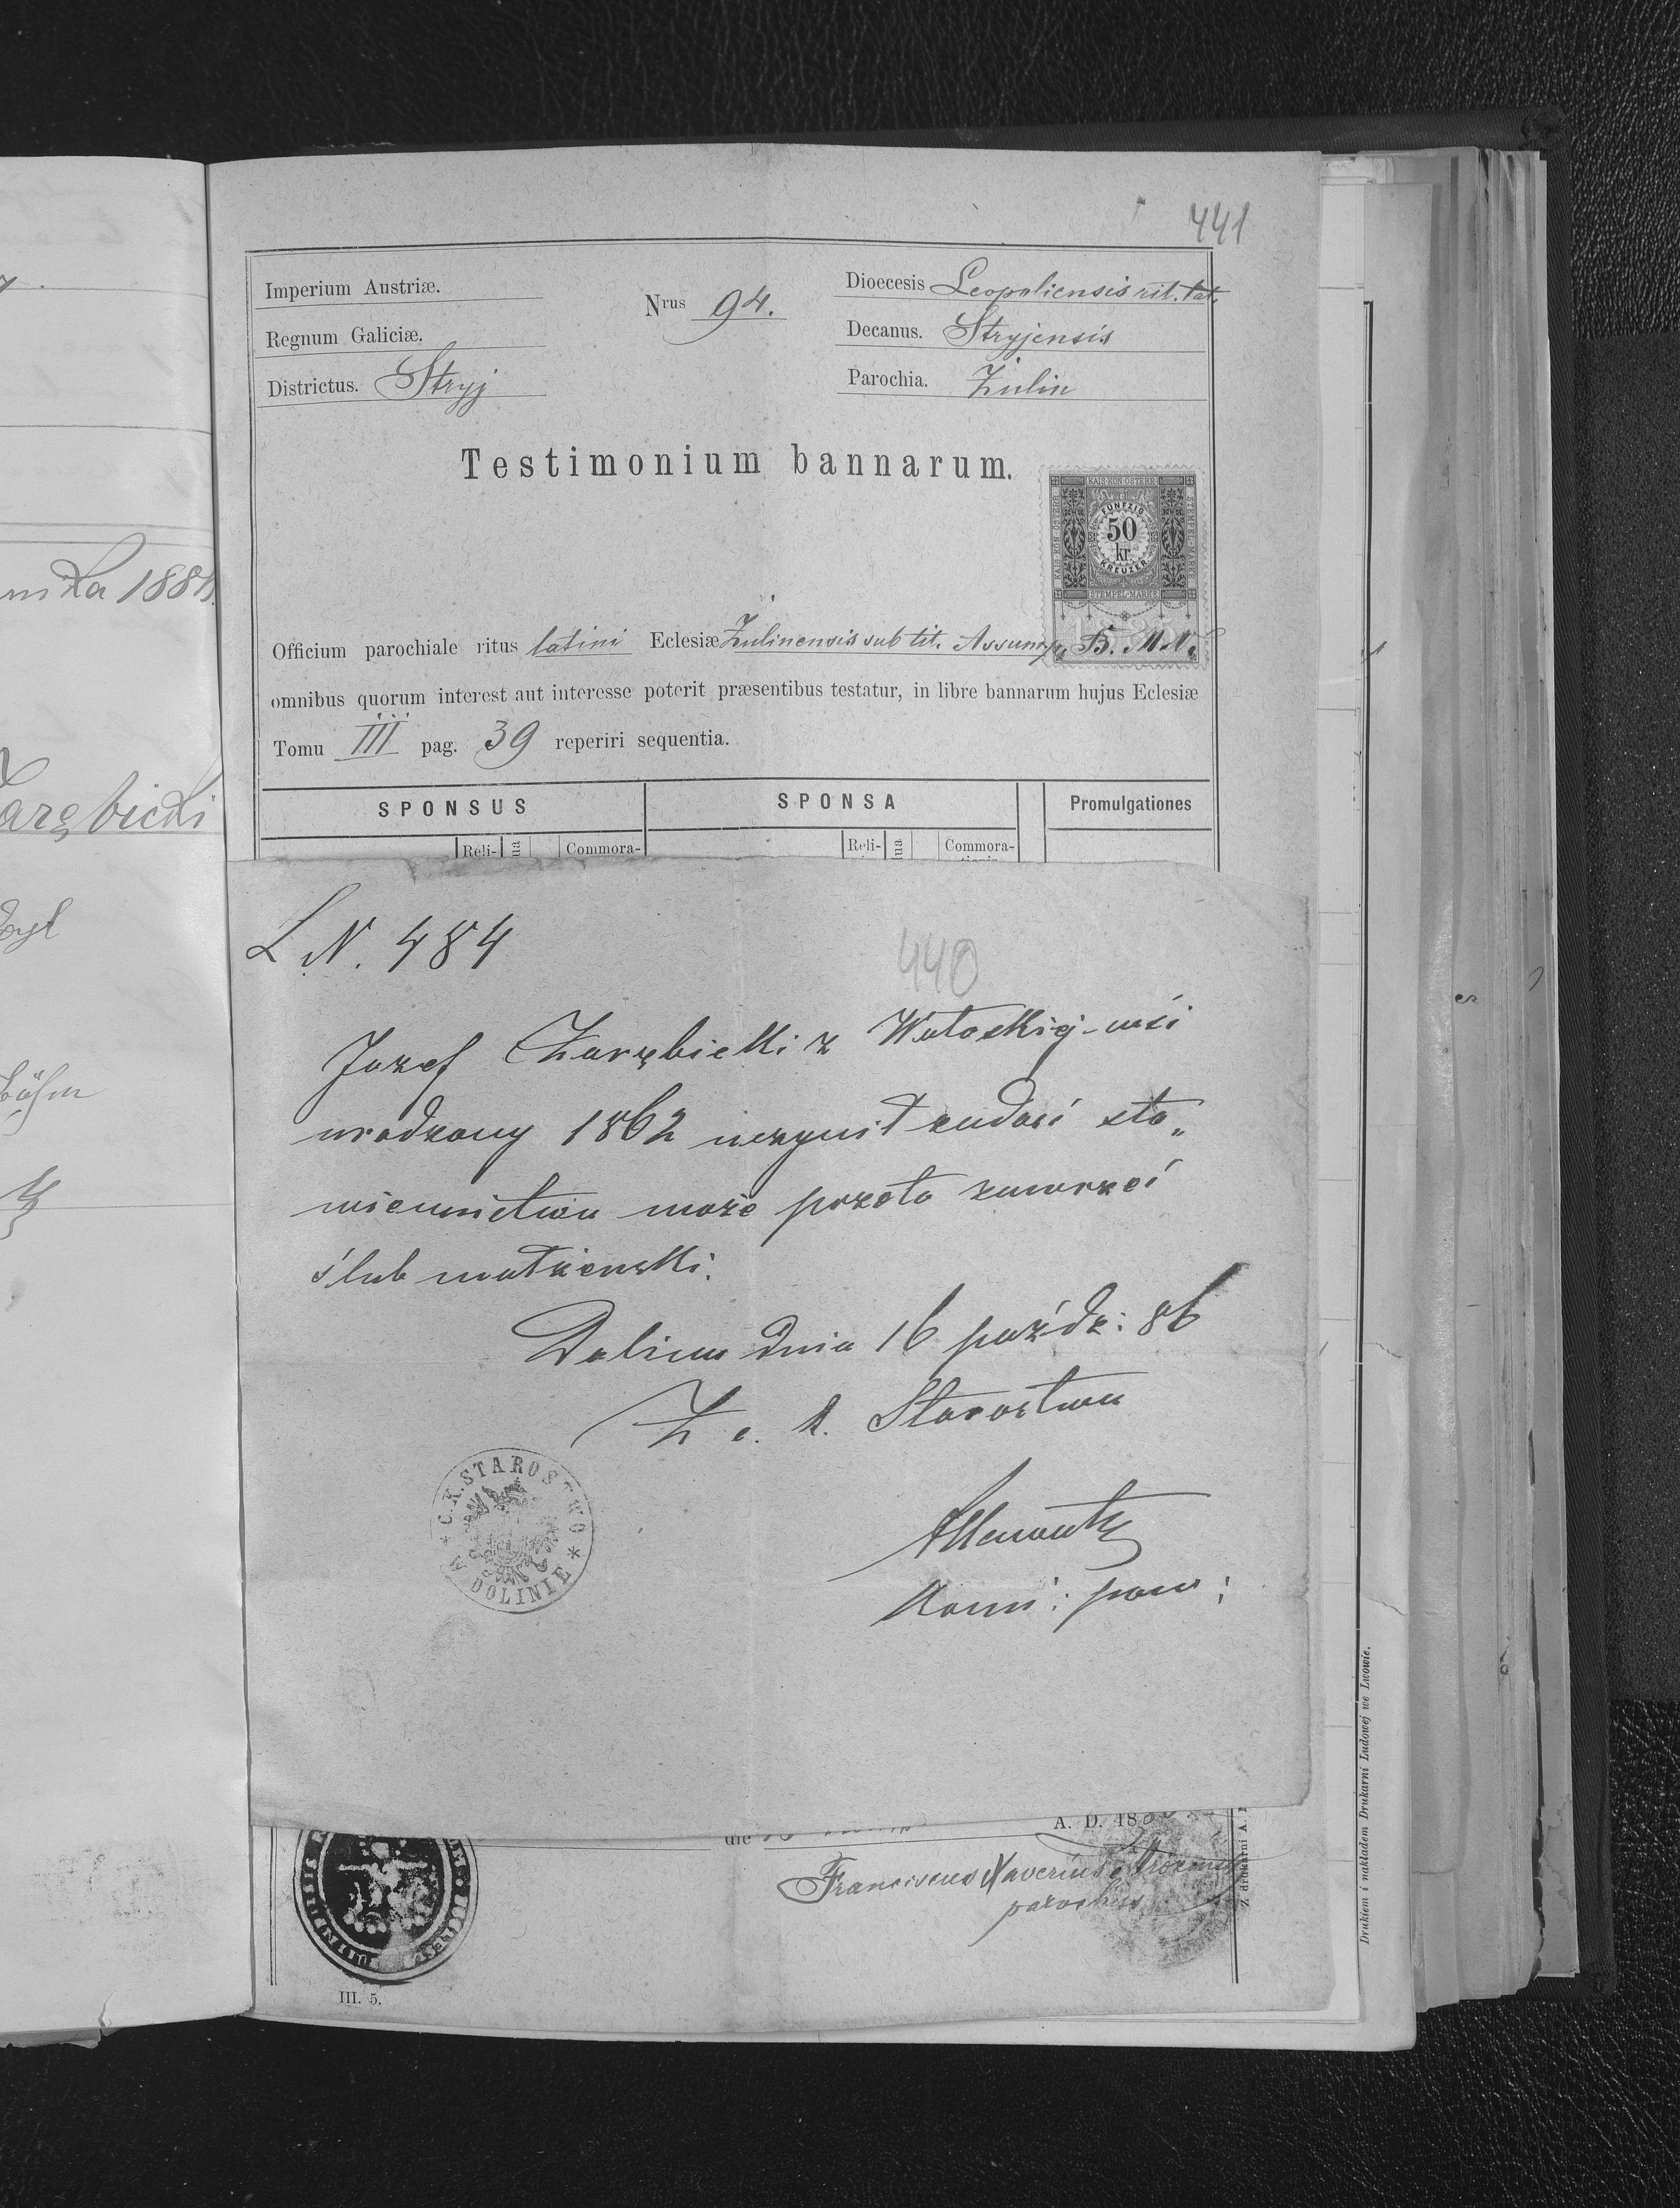 441
Imperium Austriæ.
Nrus 94.
Dioecesis Leopoliensis rit. lat.
Regnum Galiciæ.
Decanus. Stryjensis
Districtus. Stryj
Parochia. Żulin
Testimonium bannarum.
KAIS. KÖN. ÖSTERR.
FÜNFZIG
50
kr.
KREUZER
STEMPEL-MARKE
Officium parochiale ritus latini Eclesiæ Żulinensis sub tit. Assump. B. M. V.
omnibus quorum interest aut interesse poterit præsentibus testatur, in libre bannarum hujus Eclesiæ
Tomu III pag. 39 reperiri sequentia.
SPONSUS
SPONSA
Promulgationes
Reli-
Commora-
Reli-
Commora-
L. N. 484
440
Jozef Zarębicki z Wołoskiej-wsi
urodzony 1862 uczynił zadość sta„
wiennictwu może przeto zawrzeć
ślub małżeński.
Dolina dnia 16 paźdz: 86
Z c. k. Starostwa
Komi: pow:
C. K. STAROSTWO
W DOLINIE
die
A. D. 18
Franciscus Xaverius
parochus
III. 5.
Drukiem i nakładem Drukarni Ludowej we Lwowie.
mika 1881
arębicki